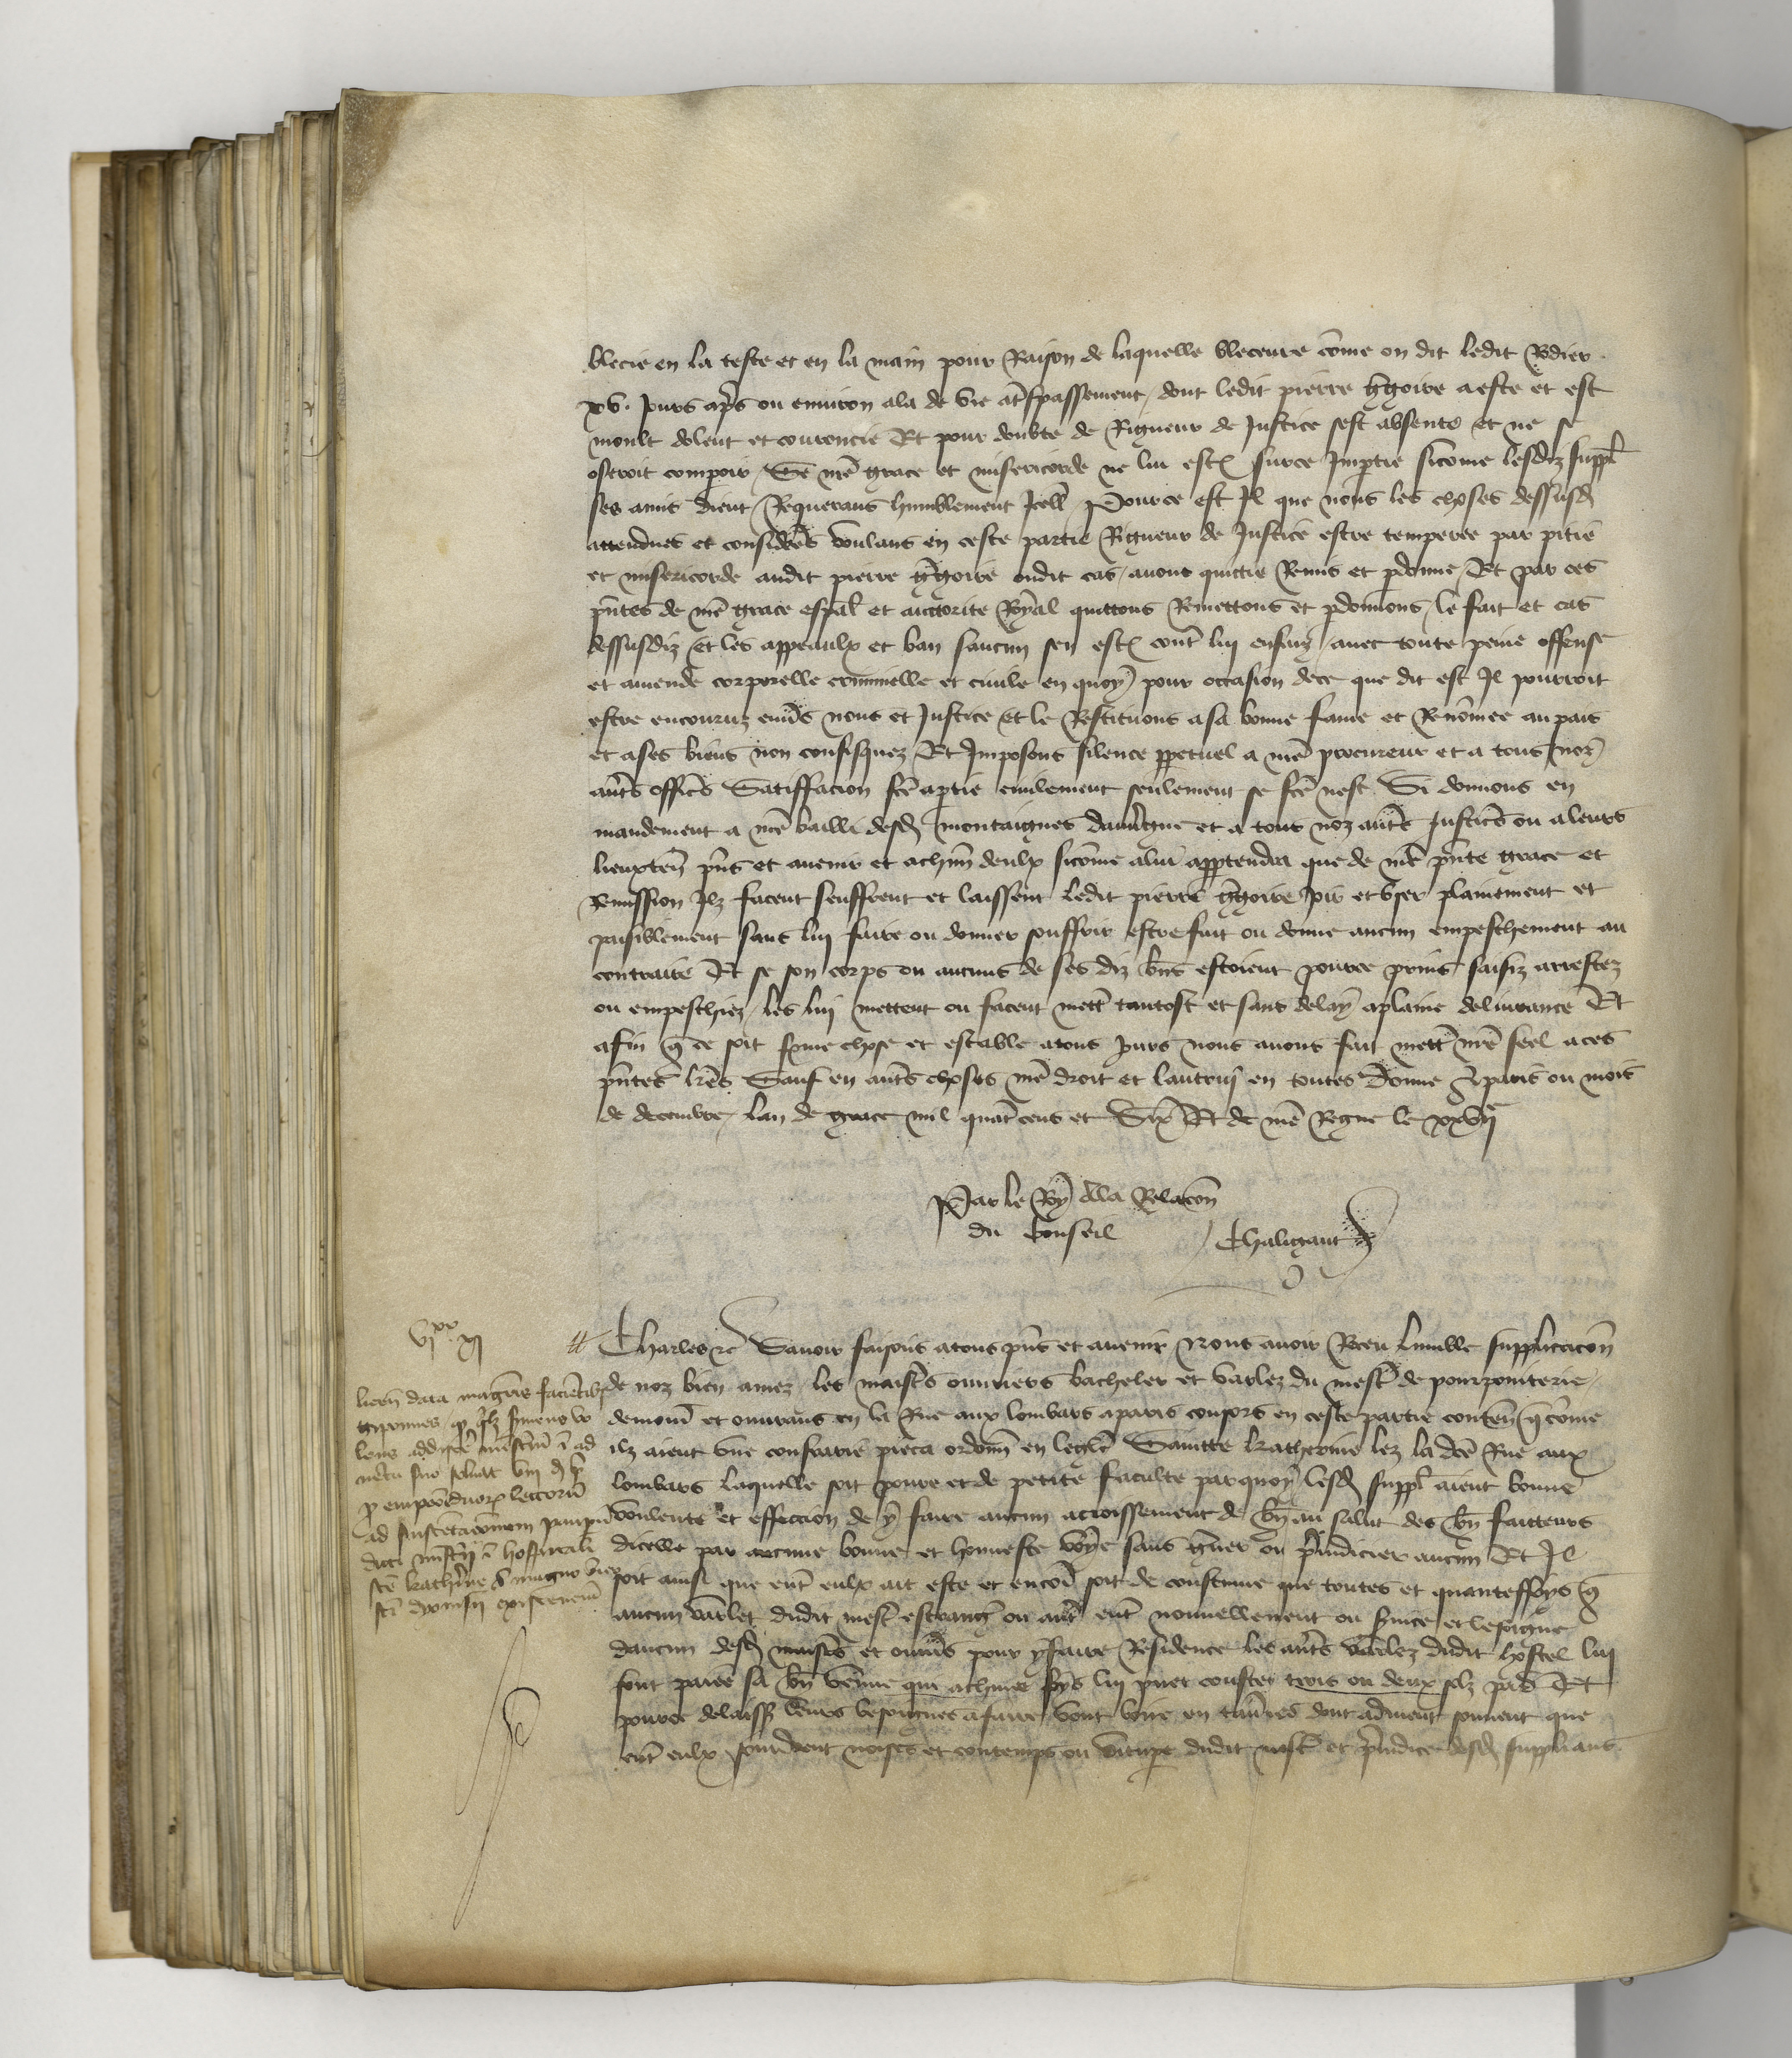 blecie en la teste et en la main pour Raison de laquelle bleceure cõme on dit ledit Odier
xv. jours apr̃s ou environ ala de vie a tr̃spassement / dont ledit pierre gr̃goire a este et est
moult dolent et couroucie Et pour doubte de Rigueur de Justice sest absente et ne se
oseroit comparoir / Se nr̃e grace et misericorde ne lui estoit sur ce Impartie sicõme lesdiz suppl
ses amis dient / Requerans humblement Icelle Pource est Il que nous les choses dessusd
attendues et considerées voulans en ceste partie Rigueur de Justice estre temperee par pitie
et misericorde audit pierre gr̃goire oudit cas / avons quictie Remis et pdonne / Et par ces
pñtes de nr̃e grace espãl et auctorite Royal quittons Remettons et pdonnons / le fait et cas
dessusdiz / et les appeaulx et ban saucun sen est contr̃ lui ensuiz / avec toute peine offense
et amende corporelle criminelle et civile en quoy pour occasion dece que dit est Il pourroit
estre encouruz envr̃s nous et Justice Et le Restituons a sa bonne fame et Renõmee au pais
et a ses biens non confisquez / Et Imposons silence ppetuel a nr̃e procureur et a tous noz
autr̃s offic̃s Satiffacion fc̃e a ptie civilement seulement se fc̃e nest Si donnons en
mandement a nr̃e bailli desd montaignes dauvr̃gne et a tous noz autr̃s Justic̃s ou a leurs
lieuxten̄ pñs et avenir et a chũn deulx sicõme a lui apptendra que de nr̃e pñte grace et
Remission Ilz facent seuffrent et laissent ledit pierre gr̃goire joir et user plainement et
paisiblement sans lui faire ou donner souffrir estre fait ou donne aucun empeschement au
contraire Et se son corps ou aucuns de ses diz biñs estoient pource prins saisiz arrestez
ou empeschiez / les lui mettent ou facent mettr̃ tantost et sans delay a plaine delivrance Et
afin q̃ ce soit ferme chose et estable a tous jours nous avons fait mettr̃ nr̃e seel a ces
pñtes lr̃es Sauf en autr̃s choses nr̃e droit et lautruy en toutes Donne a paris ou mois
de decembre / lan de grace mil quatr̃ cens et Six Et de nr̃e Regne le xxvij
Par le Roy A la Relacõn
du Conseil
Chaligaut
vjxx xj
Charles &c Savoir faisons a tous pñs et avenir Nous avoir Receu lumble supplicacõn
de noz bien amez / les maistr̃s ouvriers bacheler et varlez du mestr̃ de pourpointerie /
demour̃ et ouvrans en la Rue aux lombars a paris consors en ceste partie conten̄ q̃ cõme
ilz aient une confrarie pieca ordonn̄ en leglise Saincte katherine lez la dc̃e Rue aux
lombars laquelle soit povre et de petite faculte parquoy lesd suppl aient bonne
voulente et affeccion de y faire aucun acroissement de bñ au salut des bñ faitteurs
dicelle par aucune bonne et honneste voye sans gr̃ver ou p̃iudicier aucun Et Il
soit ainsi que entr̃ eulx ait este et encor̃ soit de coustume que toutes et quanteffoys q̃
aucun varlet dudit mestr̃ estrangr̃ ou autr̃ entr̃ nouvellement ou service et besoigne
daucun desd maistr̃s et ouvr̃s pour y faire Residence les autr̃s varlez dudit hostel lui
font paier sa bñ venue qui a chũne foys lui puet couster trois ou deux solz pãs Et
pource delaissẽ leurs besoignes a faire / vont boire en tavr̃nes dont advient souvent que
entr̃ eulx sourdent noises et contemps ou vitupe dudit mestr̃ et p̃iudice desd supplians